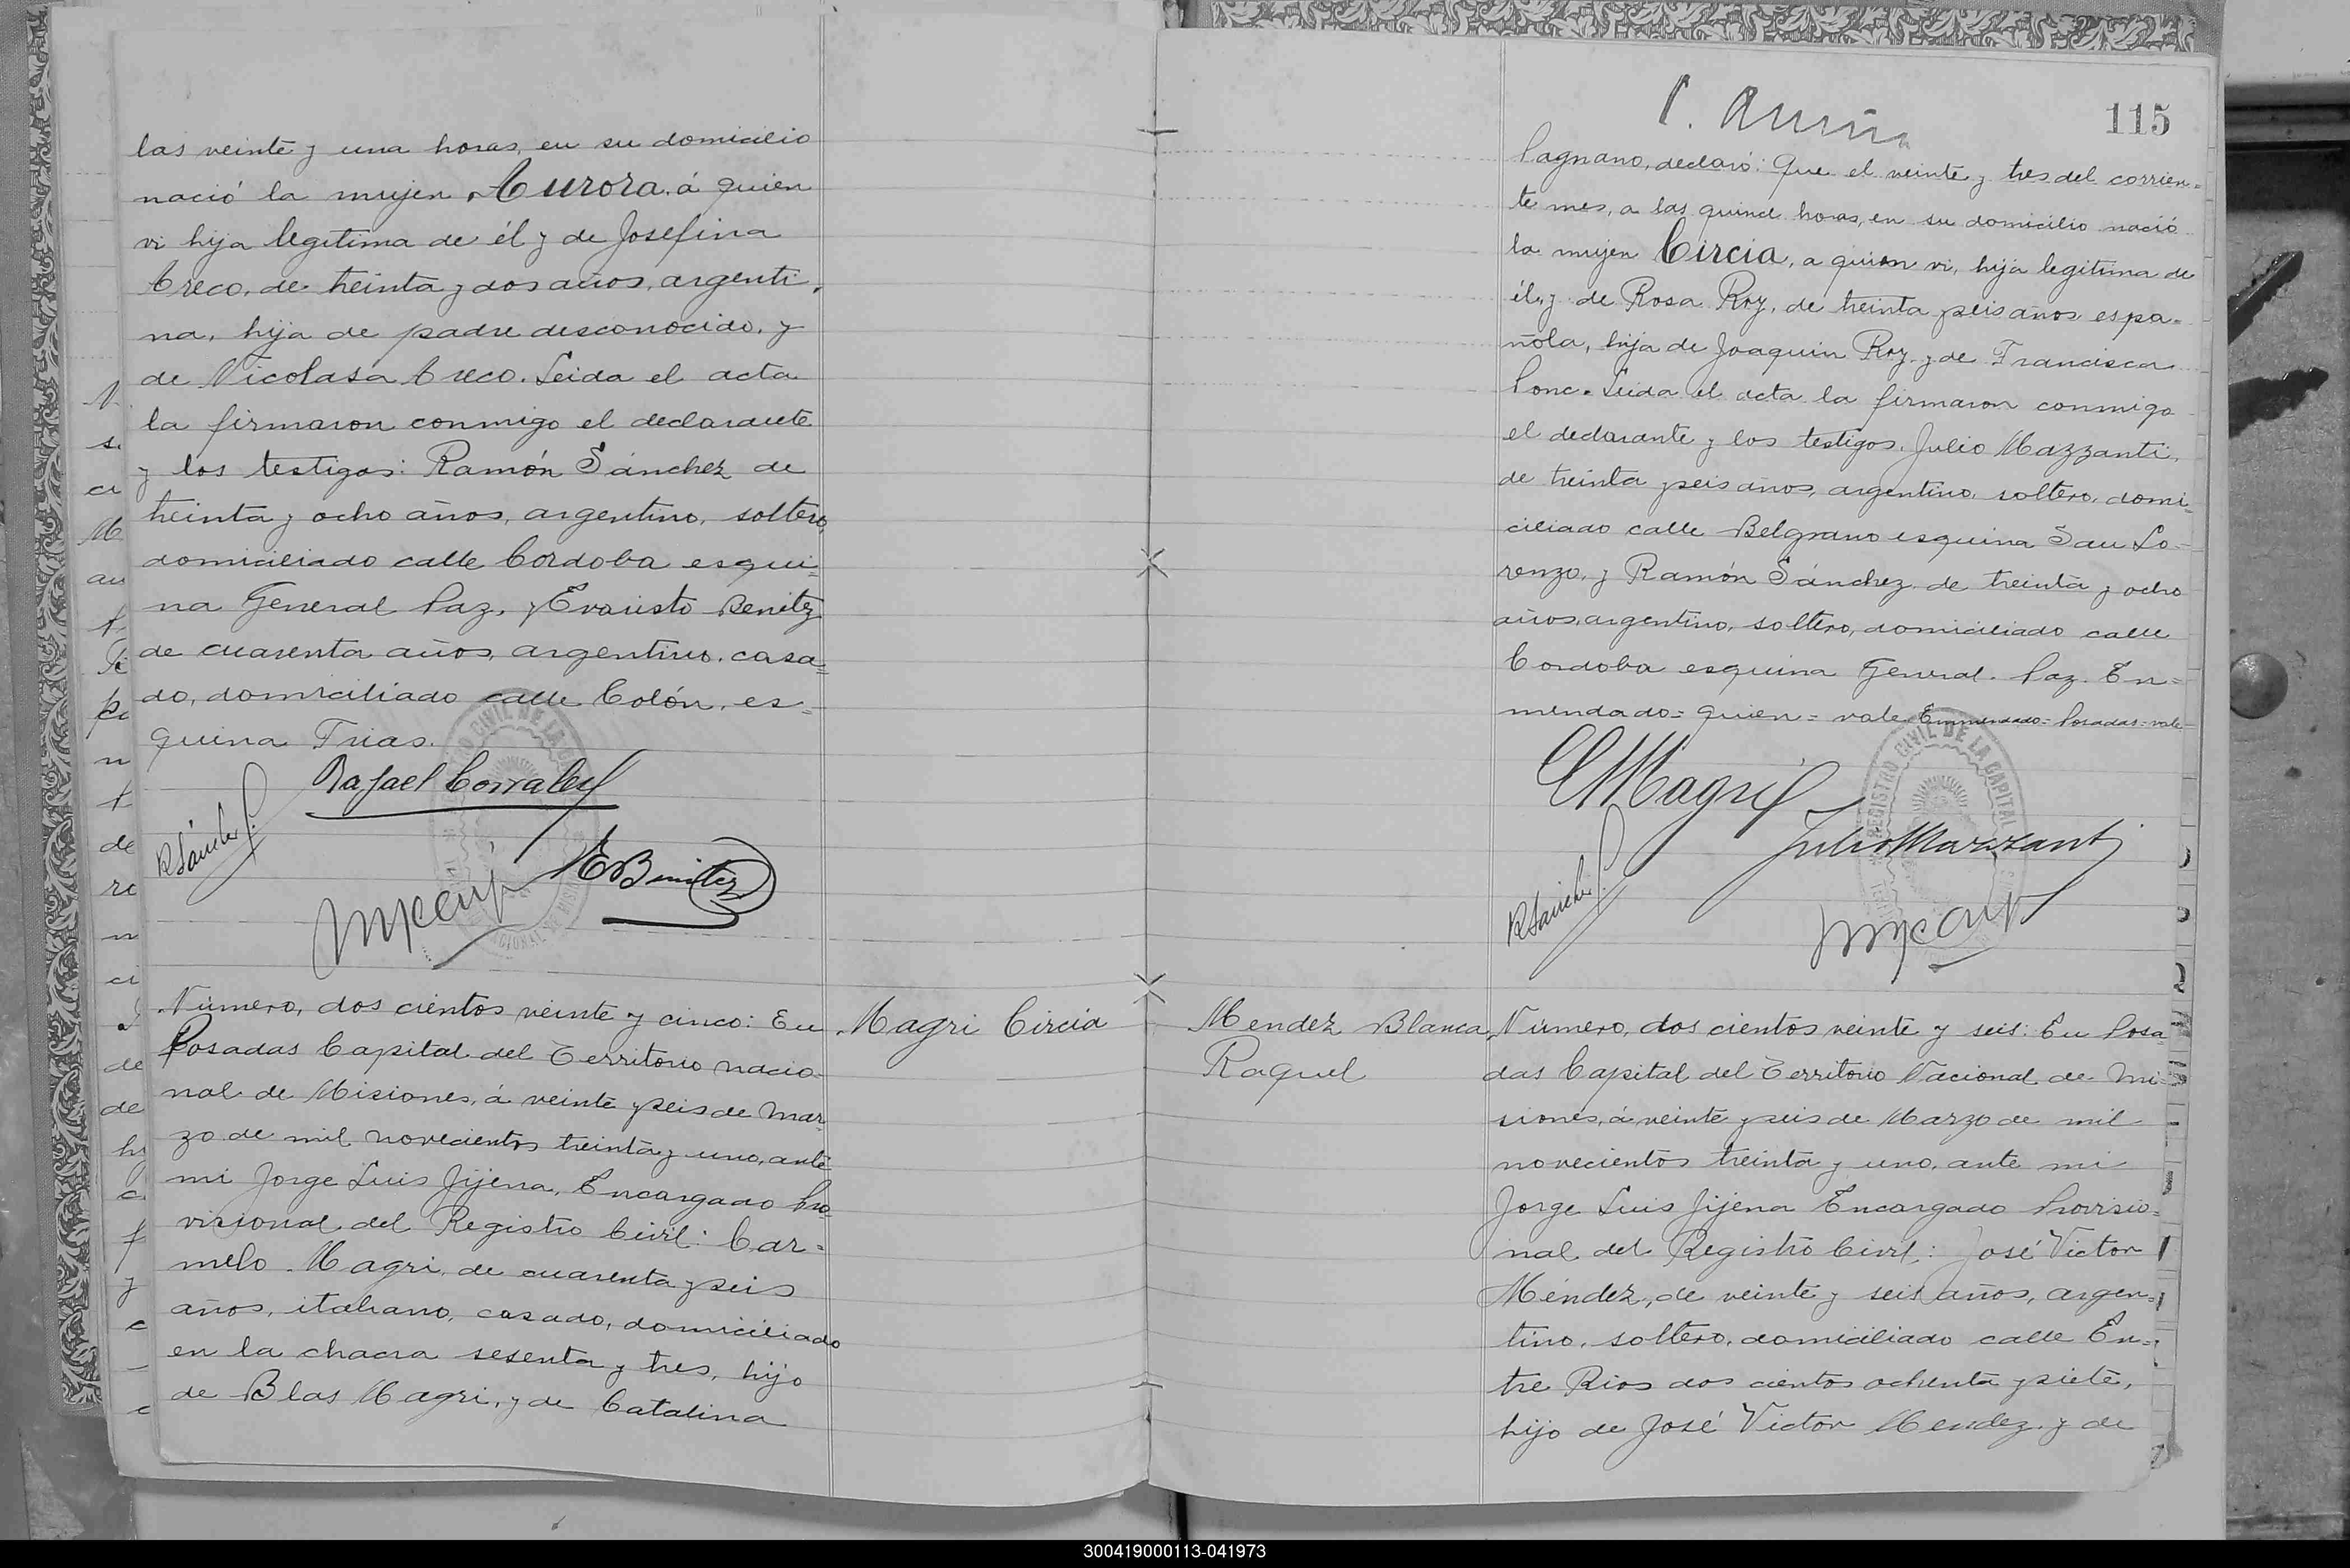 las veinte y una horas, en su domicilio
nació la mujer Aurora á quien
vi hija legitima de él y de Josefina
Creco, de treinta y dos años, argenti-
na, hija de padre desconocido, y
de Nicolasa Creco. Leida el acta
la firmaron conmigo el declarante
y los testigos: Ramón Sánchez de
treinta y ocho años, argentino, soltero,
domiciliado calle Cordoba esqui-
na General Paz, y Evaristo Benitez
de cuarenta años, argentino, casa=
do, domiciliado calle Colón, es=
quina Trias.
Rafael Corrales
RSánchez
EBenitez
Número, dos cientos veinte y cinco: En
Posadas Capital del Territorio nacio-
nal de Misiones, á veinte y seis de Mar-
zo de mil novecientos treinta y uno, ante
mi Jorge Luis Jijena, Encargado Pro-
visional del Registro Civil: Car=
melo Magri, de cuarenta y seis
años, italiano, casado, domiciliado
en la chacra sesenta y tres, hijo
de Blas Magri, y de Catalina
Magri Circia
115
Pagnano, declaró: Que el veinte y tres del corrien=
te mes, a las quince horas, en su domicilio nació
la mujer Circia, a quien vi, hija legitima de
él, y de Rosa Roy, de treinta y seis años espa=
ñola, hija de Joaquin Roy y de Francisca
Ponc. Leida el acta la firmaron conmigo
el declarante y los testigos, Julio Mazzanti,
de treinta y seis años, argentino, soltero, domi-
ciliado calle Belgrano esquina San Lo=
renzo, y Ramón Sánchez de treinta y ocho
años, argentino, soltero, domiciliado calle
Cordoba esquina General Paz. En=
mendado= quien= vale. Enmendado= Posadas= vale
CMagri
Julio Mazzanti
RSánchez
REGISTRO CIVIL DE LA CAPITAL
Mendez Blanca
Raquel
Número, dos cientos veinte y seis: En Posa-
das Capital del Territorio Nacional de Mi=
siones, á veinte y seis de Marzo de mil
novecientos treinta y uno, ante mi
Jorge Luis Jijena Encargado Provisio=
nal del Registro Civil: José Victor
Méndez, de veinte y seis años, argen=
tino, soltero, domiciliado calle En=
tre Rios dos cientos ochenta y siete,
hijo de José Victor Mendez y de
300419000113-041973